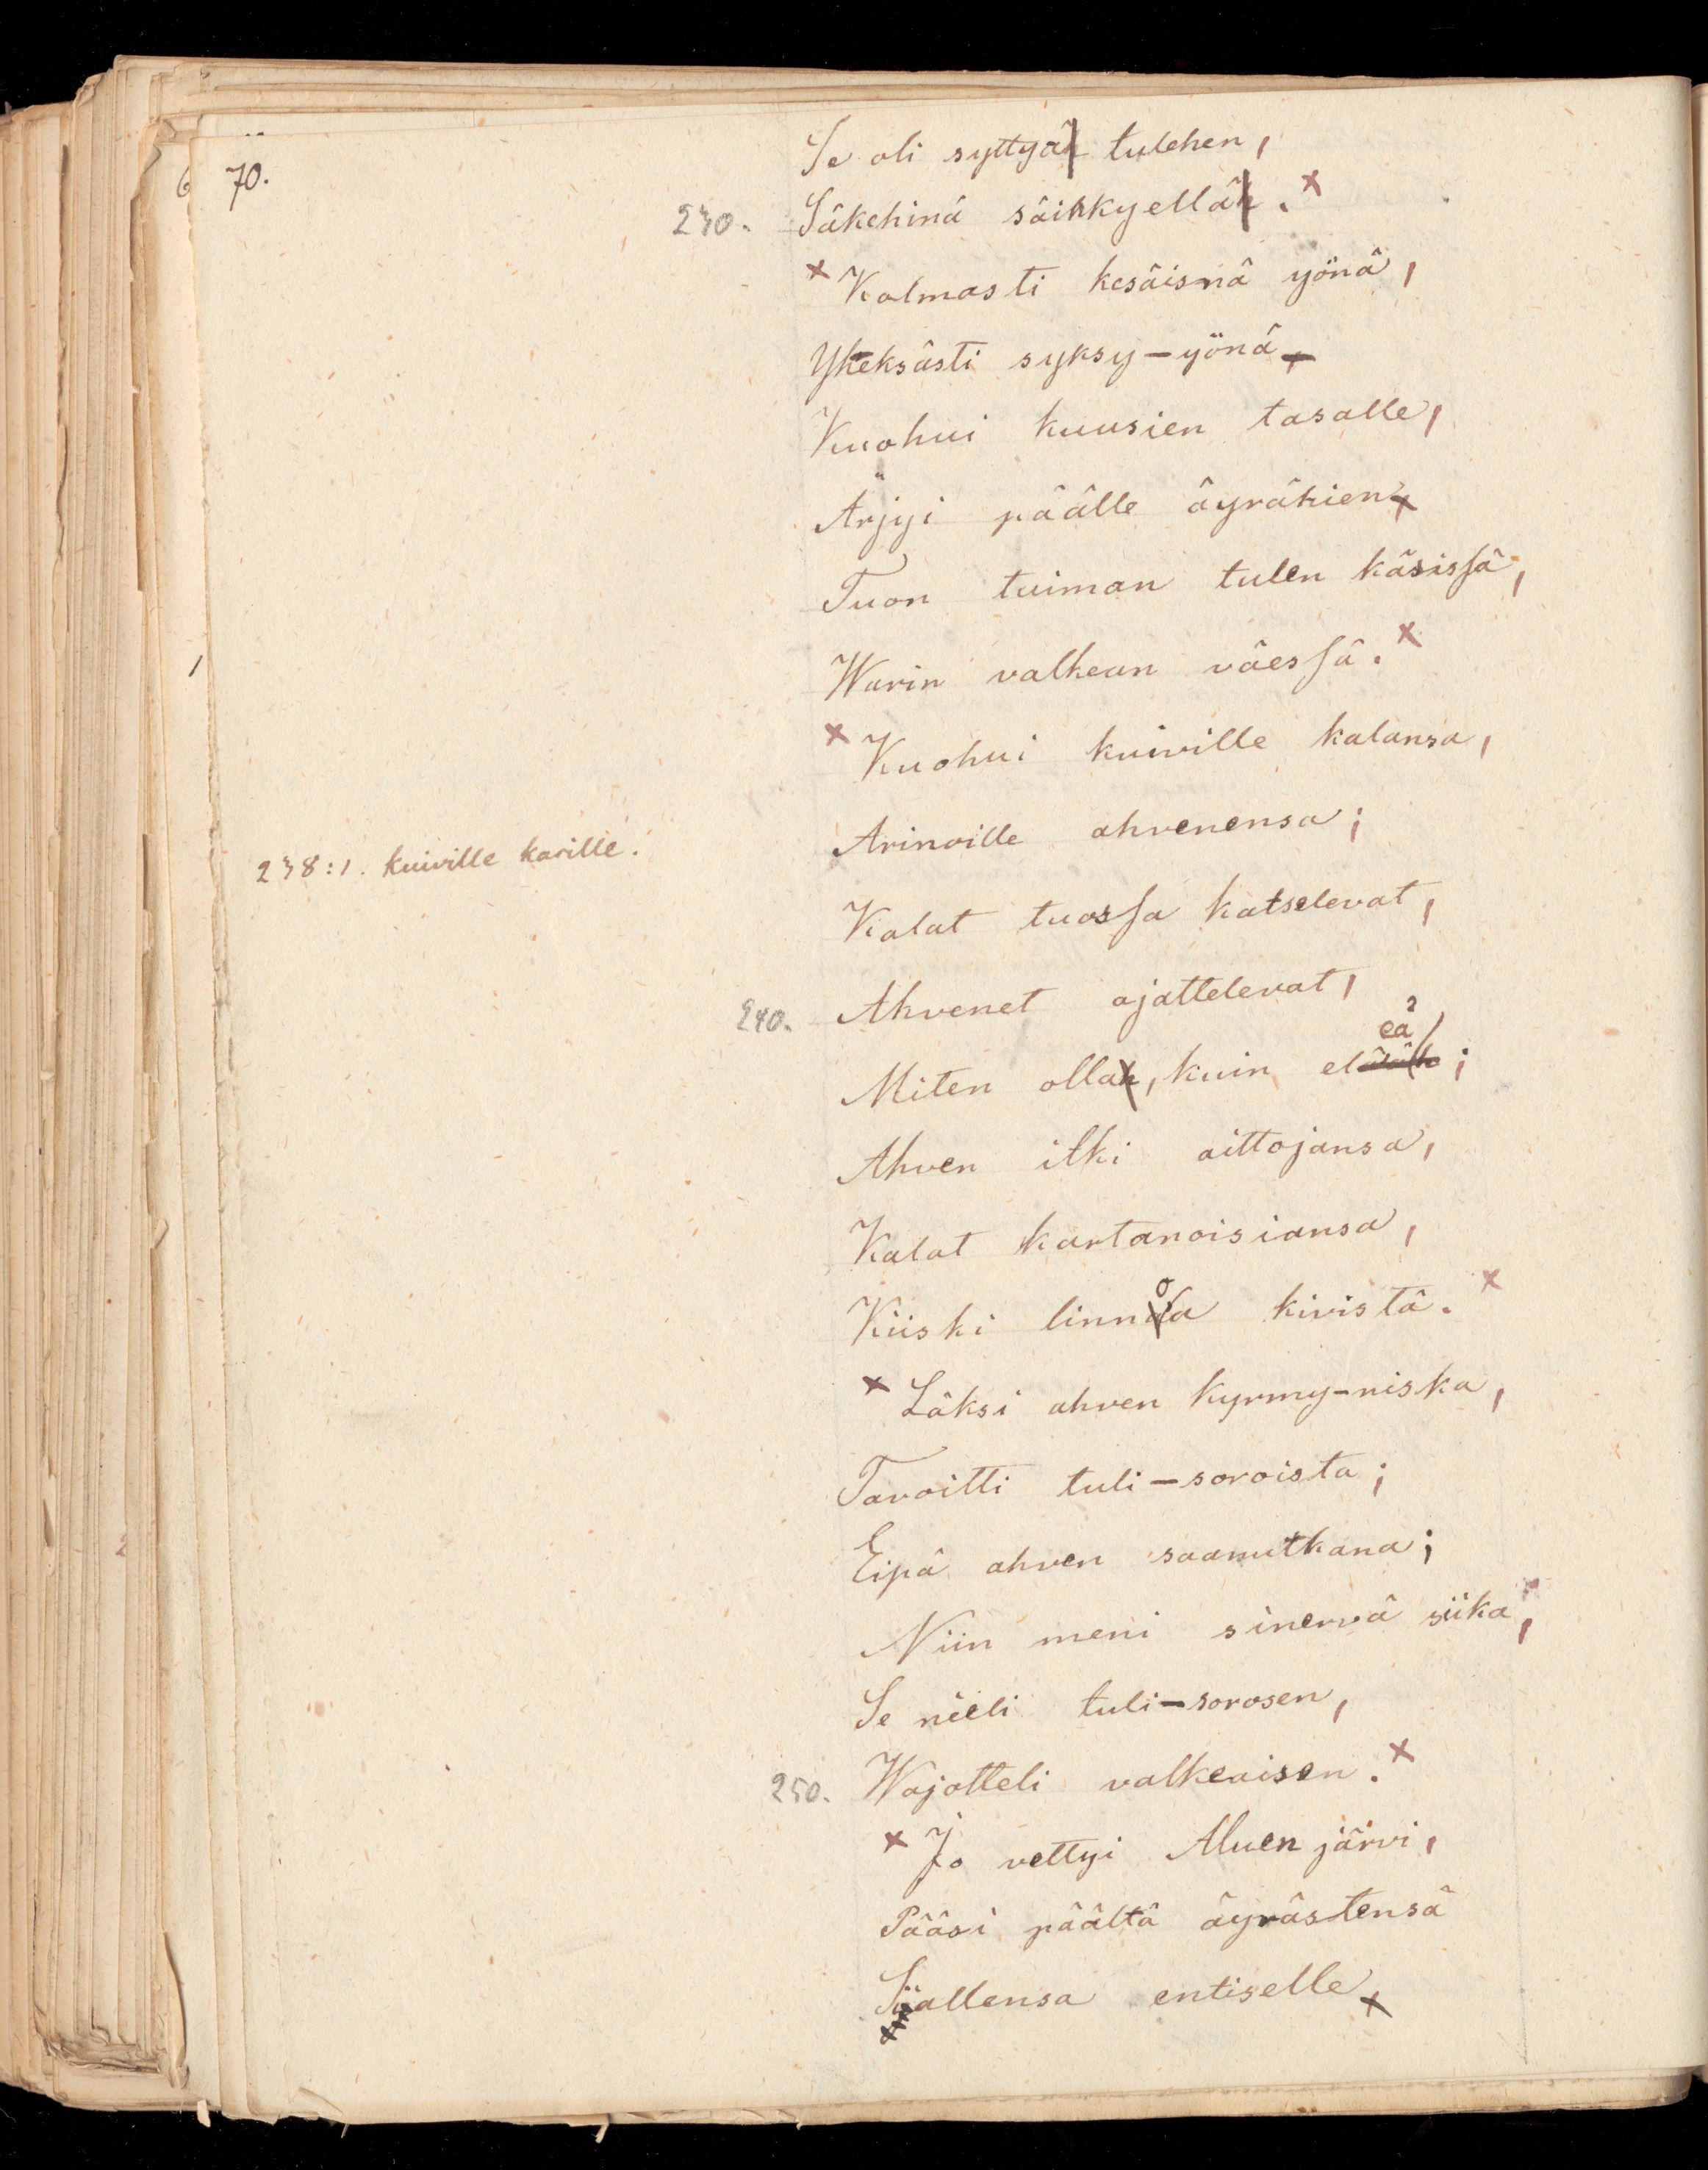 70.
Se oli syttyä tulehen,
230. Säkehinä säihkyellä.
Kolmasti kesäisnä yönä,
Yheksästi syksy-yönä
Kuohui kuusien tasalle,
Ärjyi päälle äyrähien
Tuon tuiman tulen käsissä,
Warin valkean väessä.
Kuohui kuiville kalansa,
Arinoille ahvenensa;
238:1. kuiville karille.
Kalat tuossa katselevat,
240. Ahvenet ajattelevat,
Miten olla, kuin eleä?;
Ahven itki aittojansa,
Kalat kartanoisiansa,
Kiiski linnoa kivistä.
Läksi ahven kyrmy-niska,
Tavoitti tuli-soroista;
Eipä ahven saanutkana;
Niin meni sinervä siika,
Se nieli tuli-sorosen,
250. Wajotteli valkeaisen.
Jo vettyi Aluen järvi,
Pääsi päältä äyrästensä
Siallensa entiselle